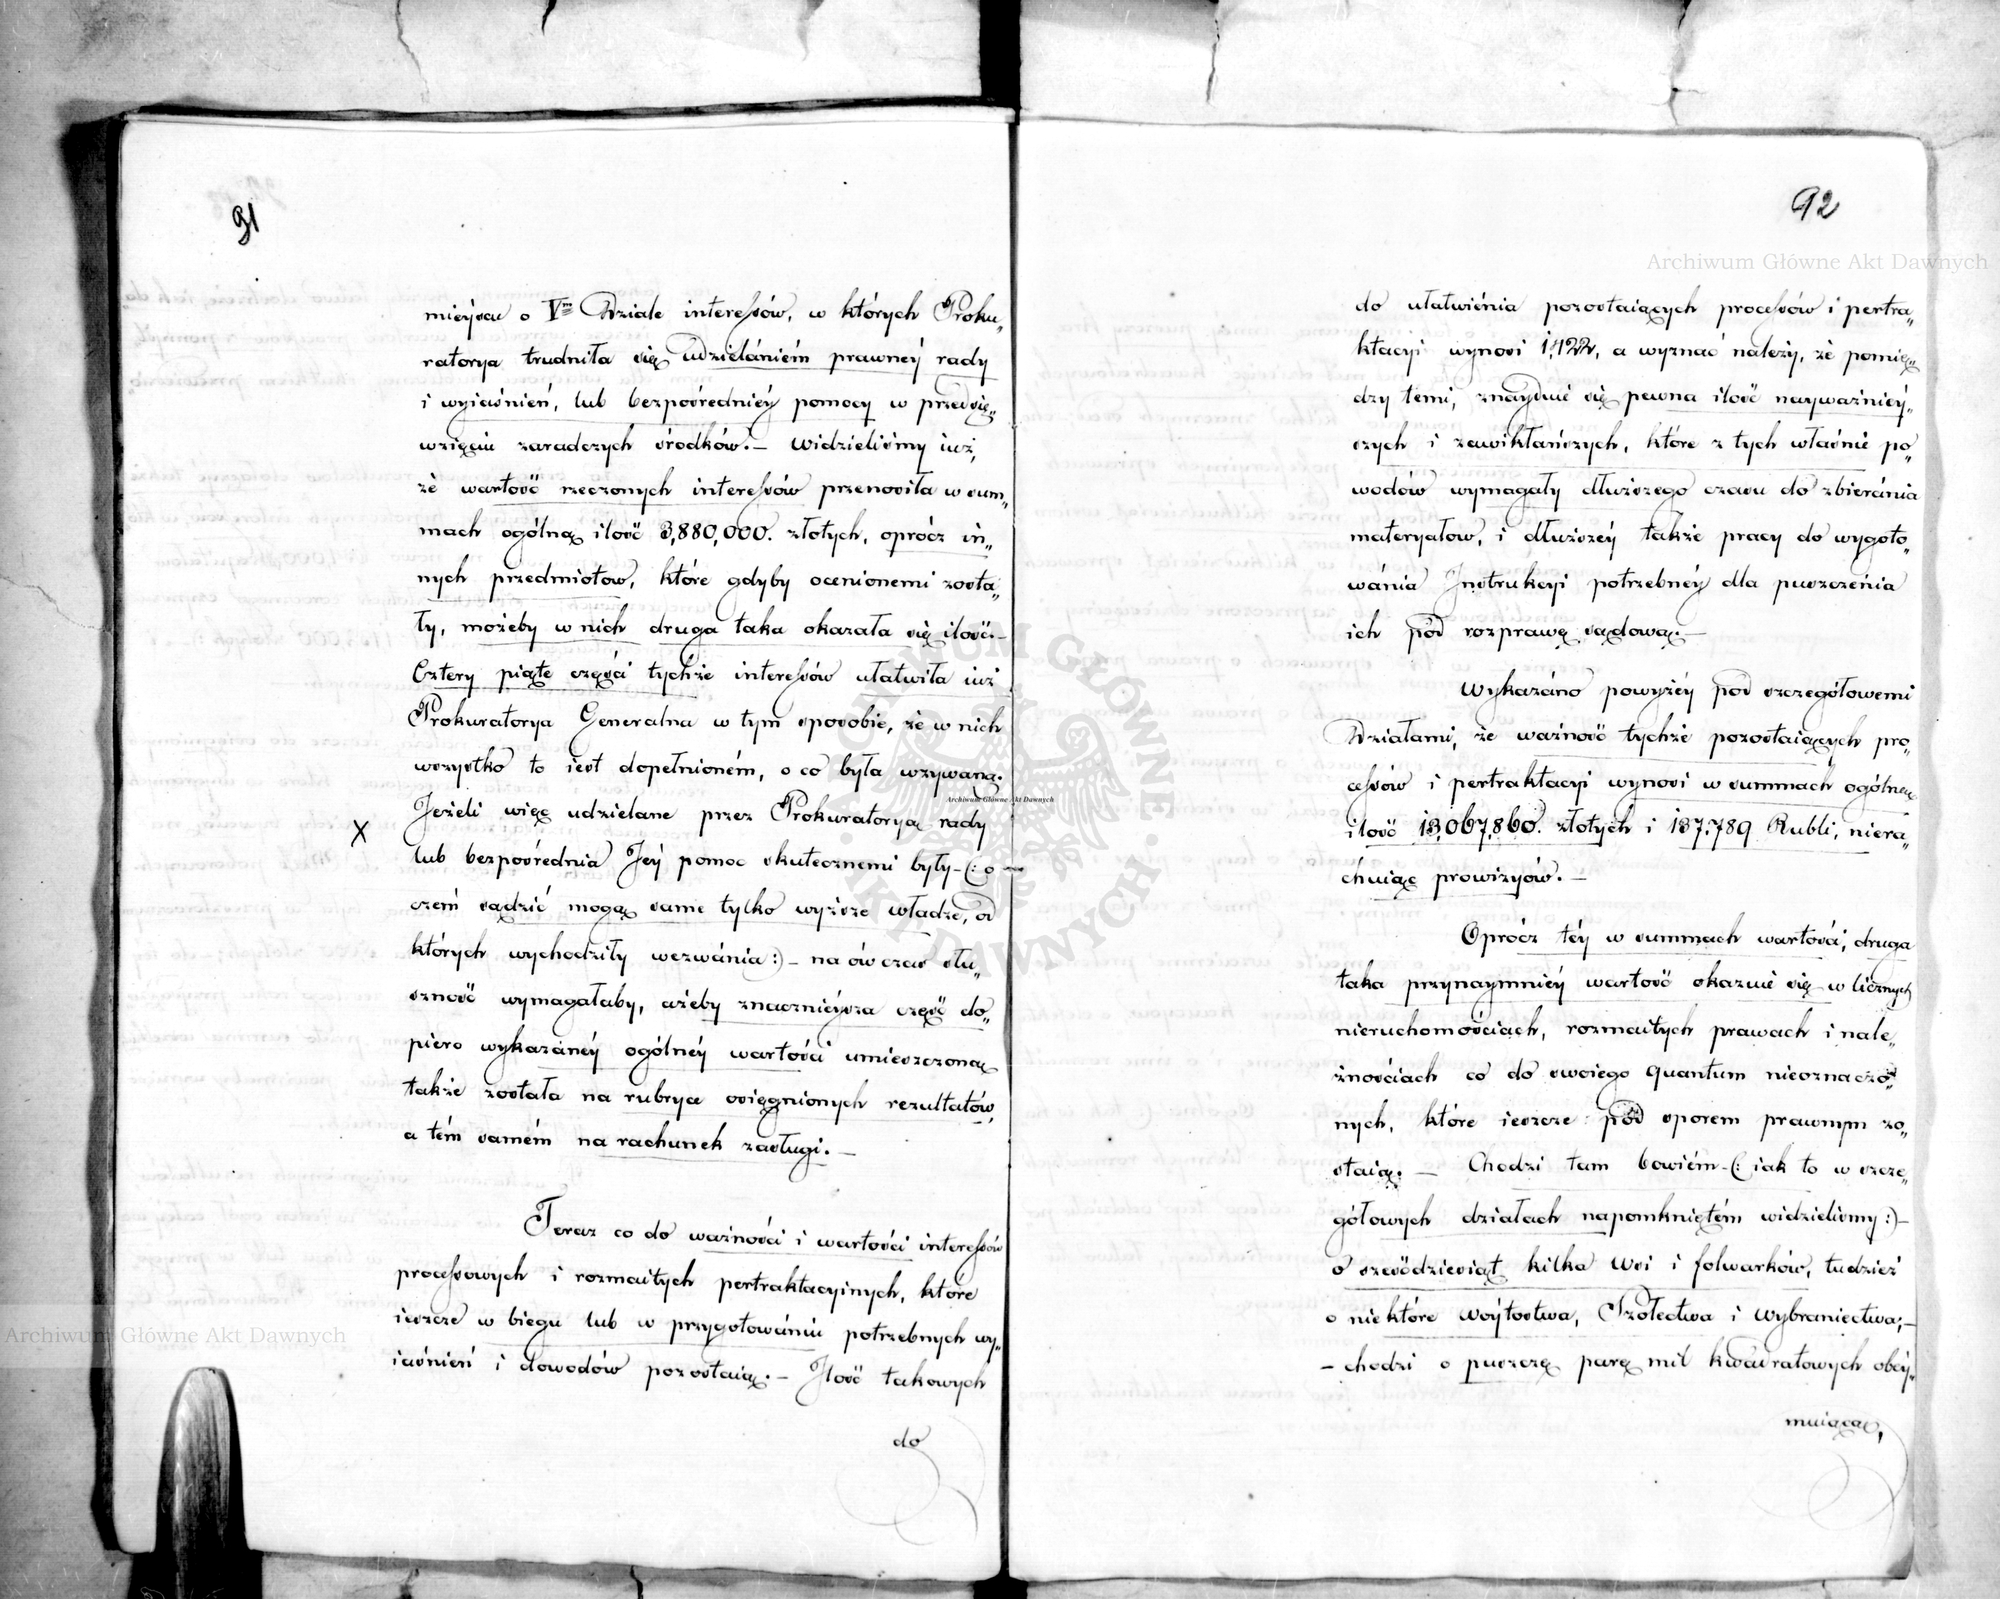 91
mieyscu o Vm Dziale interessów, w których Proku„
ratorya trudniła się udzielaniém prawnéy rady
i wyiaśnień, lub bezpośredniéy pomocy w przedsię„
wzięciu zaradczych środków. – Widzieliśmy iuż,
że wartość rzeczonych interessów przenosiła w sum„
mach ogólną ilość 3,880,000. złotych, oprócz in„
nych przedmiotów, które gdyby ocenionemi zosta„
ły, możeby w nich druga taka okazała się ilość. –
Cztery piąte części tychże interessów ułatwiła iuż
Prokuratorya Generalna w tym sposobie, że w nich
wszystko to iest dopełnioném, o co była wzywaną.
Jeżeli więc udzielane przez Prokuratoryą rady
X
lub bezpośrednia Jéy pomoc skutecznemi były – (: o
czem sądzić mogą same tylko wyższe władze, od
których wychodziły wezwania :) – na ówczas słu„
szność wymagałaby, ażeby znacznieysza część do„
piero wykazanéy ogólnéy wartości umieszczoną
także została na rubryce osięgnionych rezultatów,
a tém samém na rachunek zasługi. –
Teraz co do ważności i wartości interessów
processowych i rozmaitych pertraktacyinych, które
ieszcze w biegu lub w przygotowaniu potrzebnych wy„
iaśnień i dowodów pozostaią. – Ilość takowych
do
92
do ułatwienia pozostaiących processów i pertra„
ktacyi wynosi 1,422, a wyznać należy, że pomię„
dzy temi, znayduie się pewna ilość nayważniéy„
szych i zawikłańszych, które z tych właśnie po„
wodów wymagały dłuższego czasu do zbierania
materyałow, i dłuższéy także pracy do wygoto„
wania Instrukcyi potrzebnéy dla puszczenia
ich pod rozprawę sądową. –
Wykazano powyżéy pod szczegółowemi
Działami, że ważność tychże pozostaiących pro„
cessów i pertraktacyi wynosi w summach ogólną
ilość 13,067,860. złotych i 137,789 Rubli, niera„
chuiąc prowizyów. –
Oprócz téy w summach wartości, druga
taka przynaymniéy wartość okazuie się w licznych
nieruchomościach, rozmaitych prawach i nale„
żnościach co do swoiego quantum nieoznaczo„
nych, które ieszcze pod sporem prawnym zo„
staią. – Chodzi tam bowiém – (: iak to w szcze„
gółowych działach napomkniętém widzieliśmy :) –
o sześćdziesiąt kilka Wsi i folwarków, tudzież
o niektóre Woytostwa, Szołectwa i Wybraniectwa; –
– chodzi o puszczę parę mil kwadratowych obéy„
muiącą,
Archiwum Główne Akt Dawnych
Archiwum Główne Akt Dawnych
Archiwum Główne Akt Dawnych
ARCHIWUM GŁÓWNE · AKT DAWNYCH ·